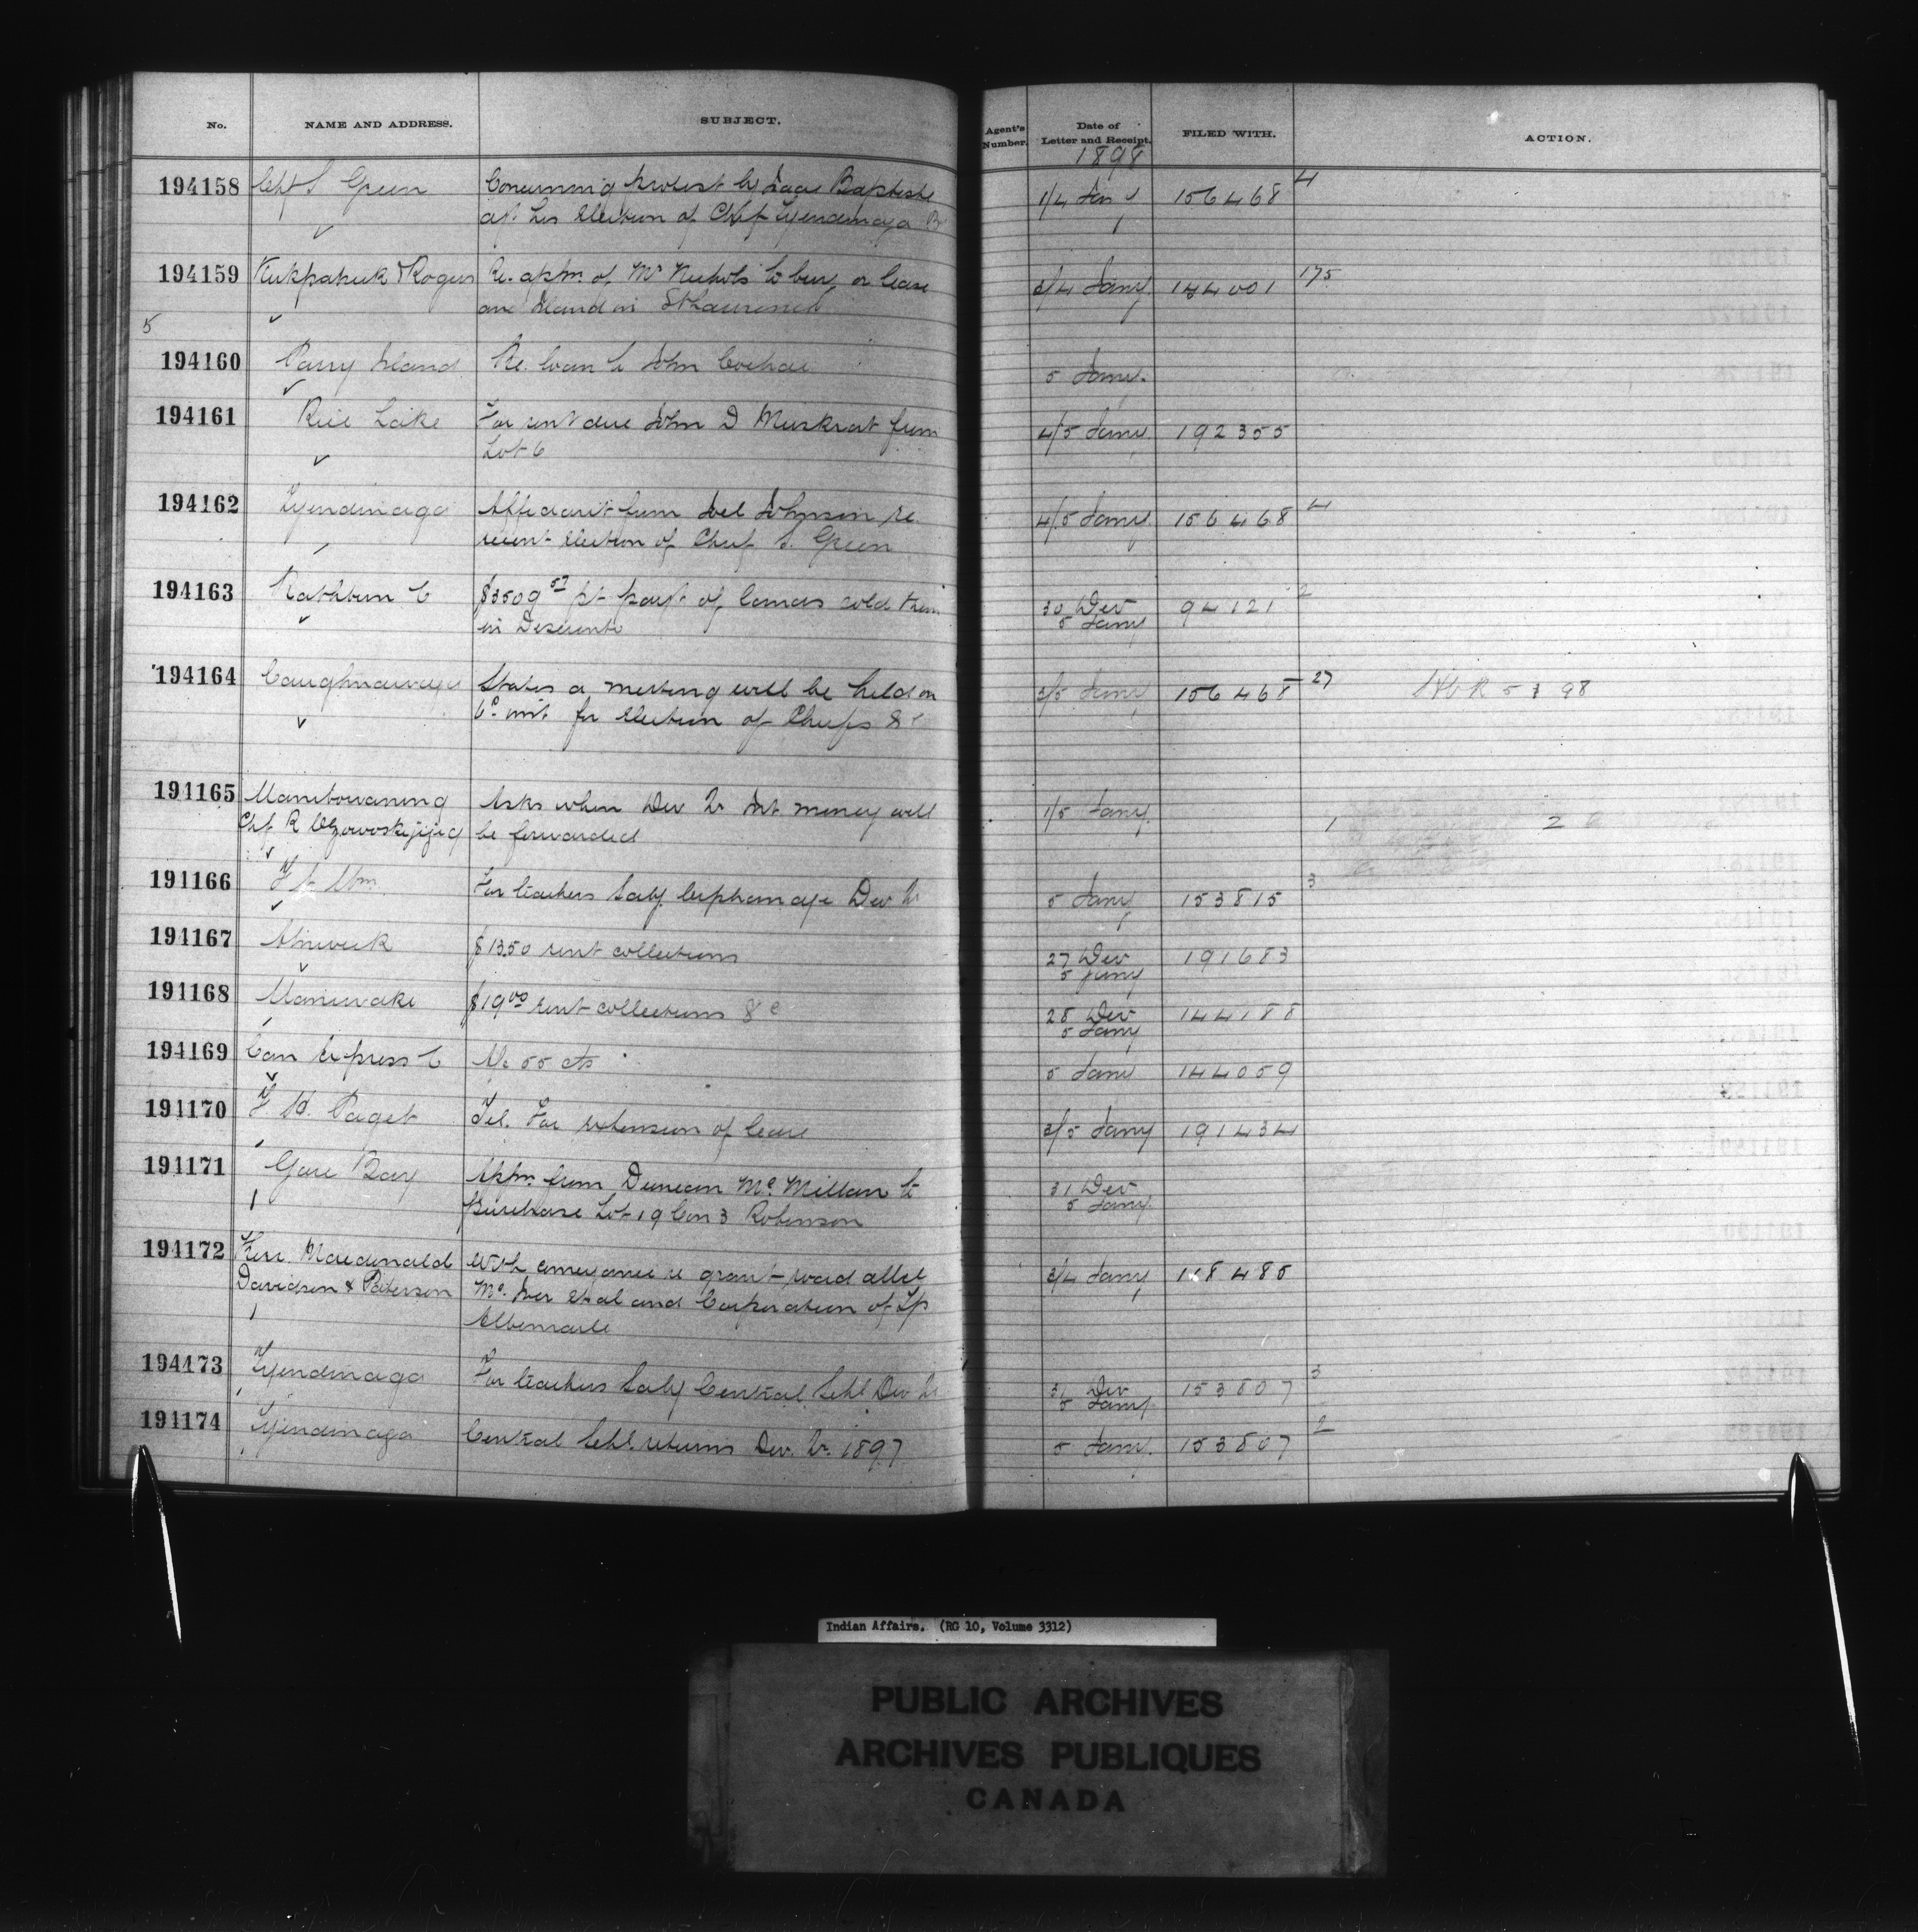 No. NAME AND ADDRESS. SUBJECT. Agent's Number. Date of Letter and Receipt. FILED WITH. ACTION.
1898
194158 Chf S Green Concerning protest by Isaac Baptiste 1/4 156468 4
at his election of Chf Tyendinaga B
194159 Kirkpatrick & Rogers Re. apln. of Mr Nichols to buy or lease 3/4 Jany. 144001 175
an Island in St Lawrence
5
194160 Parry Island Re. loan to John 5 Jany.
194161 Rice Lake For rent due John D Muskrat from 4/5 Jany 192355
Lot 6
194162 Tyendinaga Affidavit from Joel Johnson re. 4/5 Jany 156468 4
recent election of Chief S. Green
194163 Rathbun C $3509 57 pt payt. of lands sold them 30 Dec 94121 2
in Deseronto 5 Jany
194164 Caughnawaga States a meeting will be held on 3/5 Jany 156468 27 5 1 98
6th inst. for election of Chiefs &c
194165 Manitowaning Asks when Dec Qr Int money will 1/5 Jany. 1 2
Chf R be forwarded
194166 For teachers Saly. Orphanage Dec Qr 5 Jany 153815 3
194167 Alnwick $1350 rent collections 27 Dec 191683
5 Jany
194168 Maniwaki $19 00 rent collections &c 28 Dec 144188
5 Jany
194169 Can Express C A/c 55 cts 5 Jany 144059
194170 F. H. Paget Tel. For extension of lease 3/5 Jany 191434
194171 Gore Bay Apln. from Duncan McMillan to 31 Dec
purchase Lot 19 Con 3 Robinson 5 Jany.
194172 Kerr. Macdonald With conveyance re grant road allce 3/4 Jany 118485
Davidson & Paterson Mc. Iver et al and Corporation of Tp
Albemarle
194173 Tyendinaga For teachers Saly Central Schl Dec Qr 31 Dec 153807 3
5 Jany.
194174 Tyendinaga Central Schl. returns Dec. Qr. 1897 5 Jany. 153807 2
Indian Affairs. (RG 10, Volume 3312)
PUBLIC ARCHIVES
ARCHIVES PUBLIQUES
CANADA